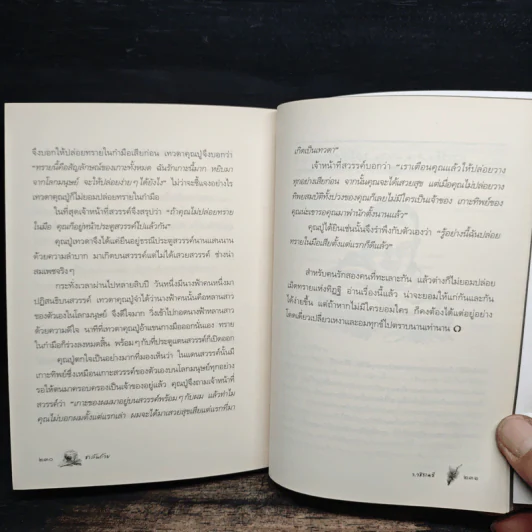 จึงบอกให้ปล่อยทรายในกำมือเสียก่อน เทวดาคุณปู่จึงบอกว่า
"ทรายนี้คือสัญลักษณ์ของเกาะทั้งหมด ฉันรักเกาะนี้มาก หยิบมา
จากโลกมนุษย์ จะให้ปล่อยง่ายๆ ได้ยังไง" ไม่ว่าจะชี้แจงอย่างไร
เทวดาคุณปู่ก็ไม่ยอมปล่อยทรายในกำมือ
ในที่สุดเจ้าหน้าที่สวรรค์จึงสรุปว่า "ถ้าคุณไม่ปล่อยทราย
ในมือ คุณก็อยู่หน้าประตูสวรรค์ไปแล้วกัน"
คุณปู่เทวดาจึงได้แต่ยืนอยู่รณีประตูสวรรค์นานแสนนาน
ด้วยความลำบาก มาเกิดบนสวรรค์แต่ไม่ได้เสวยสวรรค์ ช่างน่า
สมเพชจริงๆ
กระทั่งเวลาผ่านไปหลายสิบปี วันหนึ่งมีนางฟ้าคนหนึ่งมา
ปฏิสนธิบนสวรรค์ เทวดาคุณปู่จำได้ว่านางฟ้าคนนั้นคือหลานสาว
ของตัวเองในโลกมนุษย์ จึงดีใจมาก วิ่งเข้าไปกอดนางฟ้าหลานสาว
ด้วยความดีใจ นาทีที่เทวดาคุณปู่อ้าแขนกางมือออกนั้นเอง ทราย
ในกำมือก็ร่วงลงหมดสิ้น พร้อมๆ กับที่ประตูแดนสวรรค์ก็เปิดออก
คุณปู่ตกใจเป็นอย่างมากที่มองเห็นว่า ในแดนสวรรค์นั้นมี
เกาะทิพย์ซึ่งเหมือนเกาะสวรรค์ของตัวเองบนโลกมนุษย์ทุกอย่าง
รอให้ตนมาครอบครองเป็นเจ้าของอยู่แล้ว คุณปู่จึงถามเจ้าหน้าที่
สวรรค์ว่า "เกาะของผมมาอยู่บนสวรรค์พร้อมๆ กับผม แล้วทำไม
คุณไม่บอกผมตั้งแต่แรกเล่า ผมจะได้มาเสวยสุขเสียแต่แรกที่มา
๒๓๐
เกิดเป็นเทวดา"
เจ้าหน้าที่สวรรค์บอกว่า "เราเตือนคุณแล้วให้ปล่อยวาง
ทุกอย่างเสียก่อน จากนั้นคุณจะได้เสวยสุข แต่เมื่อคุณไม่ปล่อยวาง
ทิพยสมบัติทั้งปวงของคุณก็เลยไม่มีใครเป็นเจ้าของ เกาะทิพย์ของ
คุณน่ะเขารอคุณมาพำนักตั้งนานแล้ว"
คุณปู่ได้ยินเช่นนั้นจึงรำพึงกับตัวเองว่า "รู้อย่างนี้ฉันปล่อย
ทรายในมือเสียตั้งแต่แรกก็ดีแล้ว"
สำหรับคนรักสองคนที่ทะเลาะกัน แล้วต่างก็ไม่ยอมปล่อย
เม็ดทรายแห่งทิฏฐิ อ่านเรื่องนี้แล้ว น่าจะยอมให้แก่กันและกัน
ได้ง่ายขึ้น แต่ถ้าหากไม่มีใครยอมใคร ก็คงต้องได้แต่อยู่อย่าง
โดดเดี่ยวเปลี่ยวเหงาและอมทุกข์ไปตราบนานเท่านาน
ว.วชิรเมธี
๒๓๑